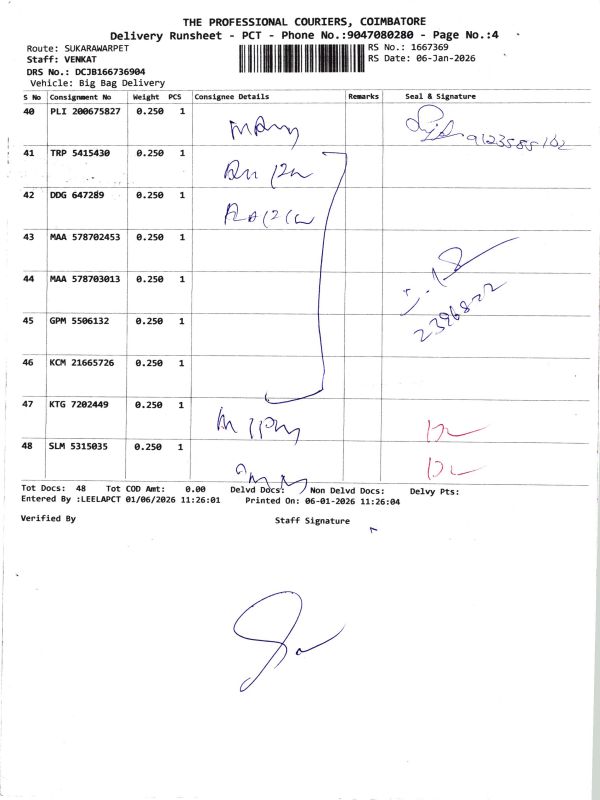 THE PROFESSIONAL COURIERS, COIMBATORE
Delivery Runsheet - PCT - Phone No.:9047080280 - Page No.:4
Route: SUKARAWARPET
RS No.: 1667369
Staff: VENKAT
RS Date: 06-Jan-2026
DRS No.: DCJB166736904
Vehicle: Big Bag Delivery
S No Consignment No Weight PCS Consignee Details Remarks Seal & Signature
40 PLI 200675827 0.250 1
41 TRP 5415430 0.250 1
42 DDG 647289 0.250 1
43 MAA 578702453 0.250 1
44 MAA 578703013 0.250 1
45 GPM 5506132 0.250 1
46 KCM 21665726 0.250 1
47 KTG 7202449 0.250 1
48 SLM 5315035 0.250 1
Tot Docs: 48 Tot COD Amt: 0.00 Delvd Docs: Non Delvd Docs: Delvy Pts:
Entered By :LEELAPCT 01/06/2026 11:26:01 Printed On: 06-01-2026 11:26:04
Verified By Staff Signature